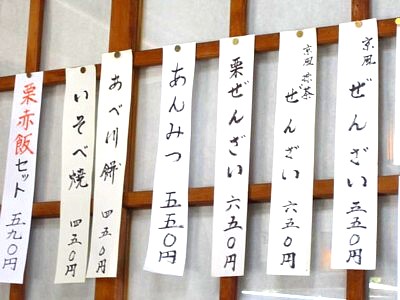 京風 ぜんざい 五五〇円
京風 抹茶 ぜんざい 六五〇円
栗ぜんざい 六五〇円
あんみつ 五五〇円
あべ川餅 四五〇円
いそべ焼 四五〇円
栗赤飯セット 五九〇円